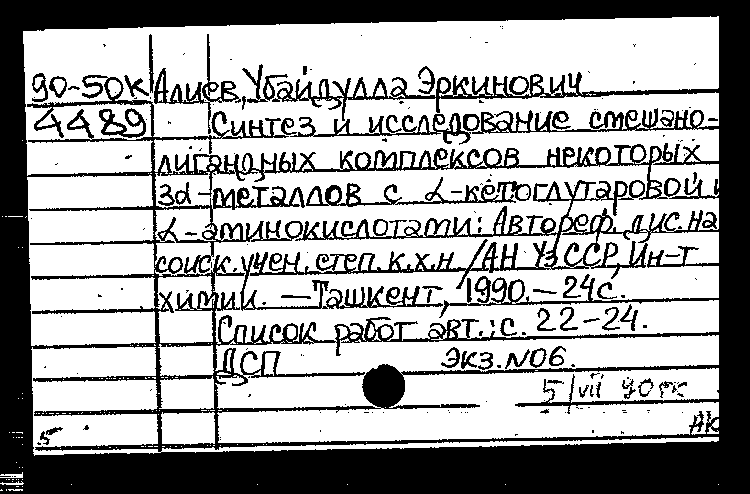 90-50К Алиев, Убайдулла Эркинович
4489 Синтез и исследование смешано-
лигандных комплексов некоторых
3d-металлов с α-кетоглутаровой и
α-аминокислотами: Автореф. дис. на
соиск. учен. степ. к.х.н. /АН УзССР, Ин-т
химии. — Ташкент, 1990. — 24с.
Список работ авт.: с. 22-24.
ДСП Экз. N06.
5/vii 90
5 АК